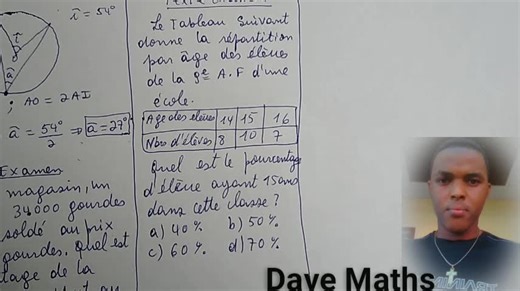 î = 54°
i
â
; AO = 2AI
â = 54°/2 ⇒ â = 27°
Examen
magasin, un
34000 gourdes
soldé au prix
gourdes, quel est
tage de la
Le Tableau Suivant
donne la répartition
par âge des élèves
de la 9e A.F d'une
école.
Age des élèves 14 15 16
Nbre d'élèves 8 10 7
Quel est le pourcentage
d'élève ayant 15 ans
dans cette classe ?
a) 40% b) 50%
c) 60% d) 70%
Dave Maths